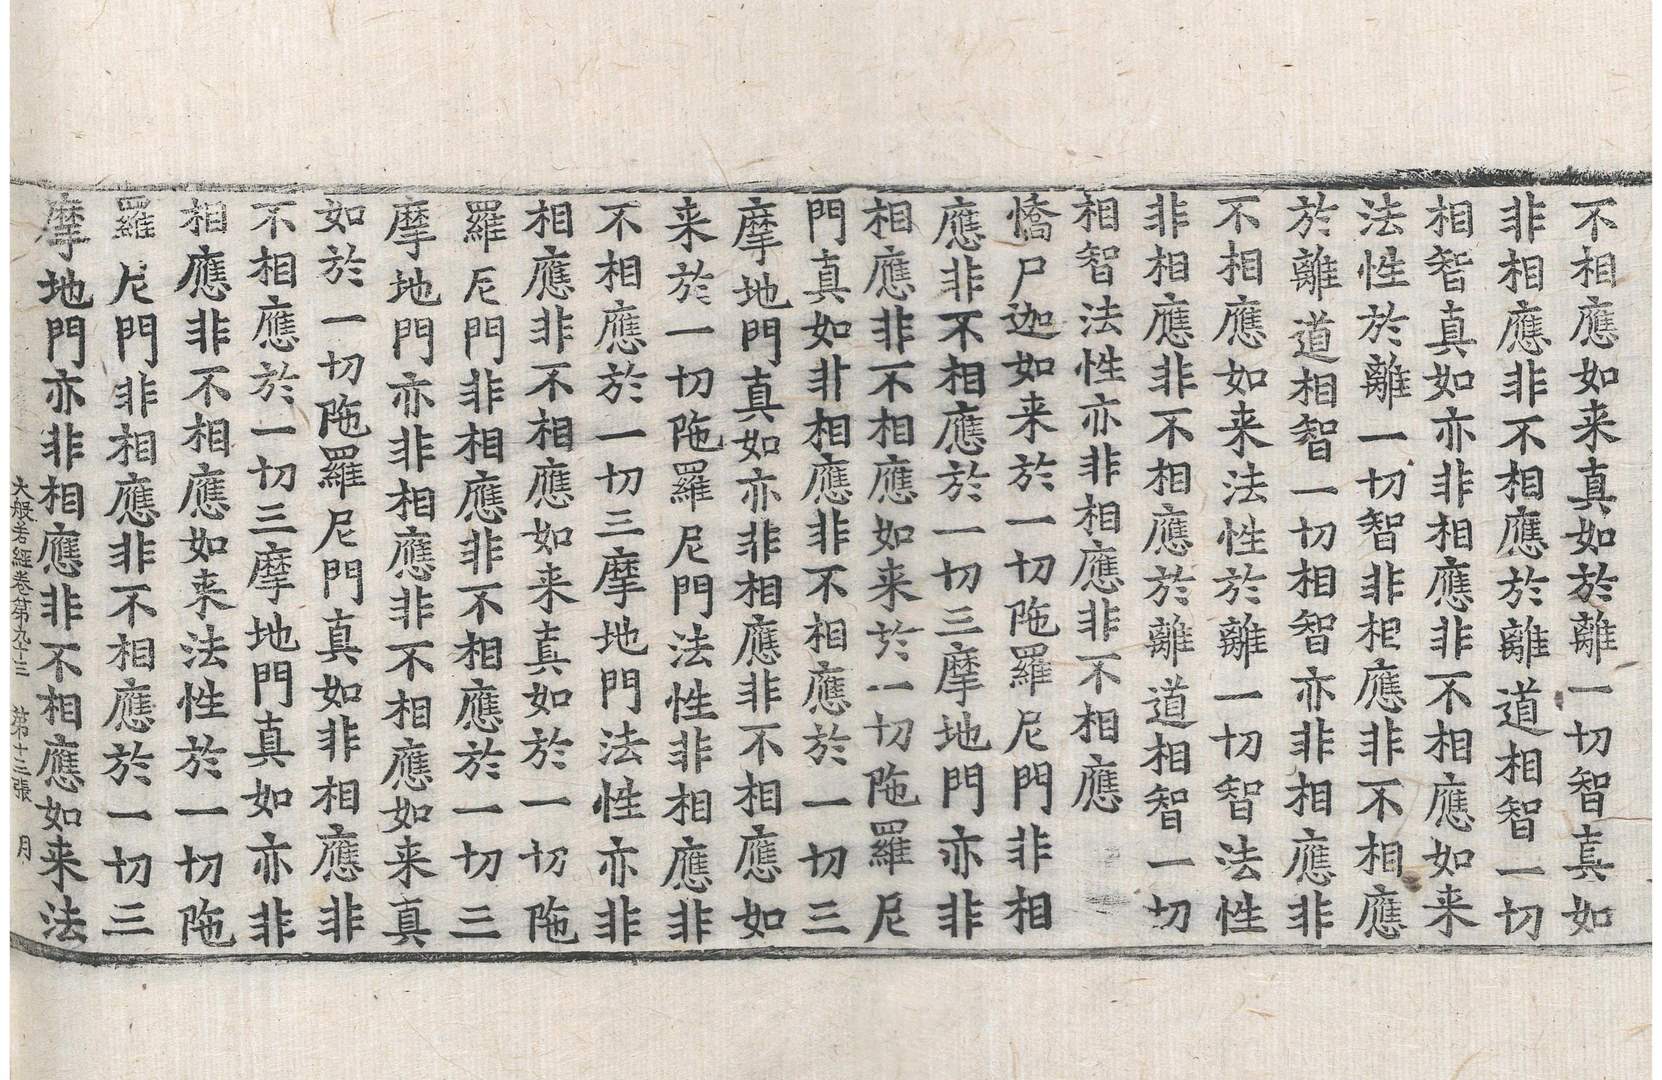 不相應如来真如於離一切智真如
非相應非不相應於離道相智一切
相智真如亦非相應非不相應如来
法性於離一切智非相應非不相應
於離道相智一切相智亦非相應非
不相應如来法性於離一切智法性
非相應非不相應於離道相智一切
相智法性亦非相應非不相應
憍尸迦如来於一切陁羅尼門非相
應非不相應於一切三摩地門亦非
相應非不相應如来於一切陁羅尼
門真如非相應非不相應於一切三
摩地門真如亦非相應非不相應如
来於一切陁羅尼門法性非相應非
不相應於一切三摩地門法性亦非
相應非不相應如来真如於一切陁
羅尼門非相應非不相應於一切三
摩地門亦非相應非不相應如来真
如於一切陁羅尼門真如非相應非
不相應於一切三摩地門真如亦非
相應非不相應如来法性於一切陁
羅尼門非相應非不相應於一切三
摩地門亦非相應非不相應如来法
大般若經卷第九十三 第十三張 月